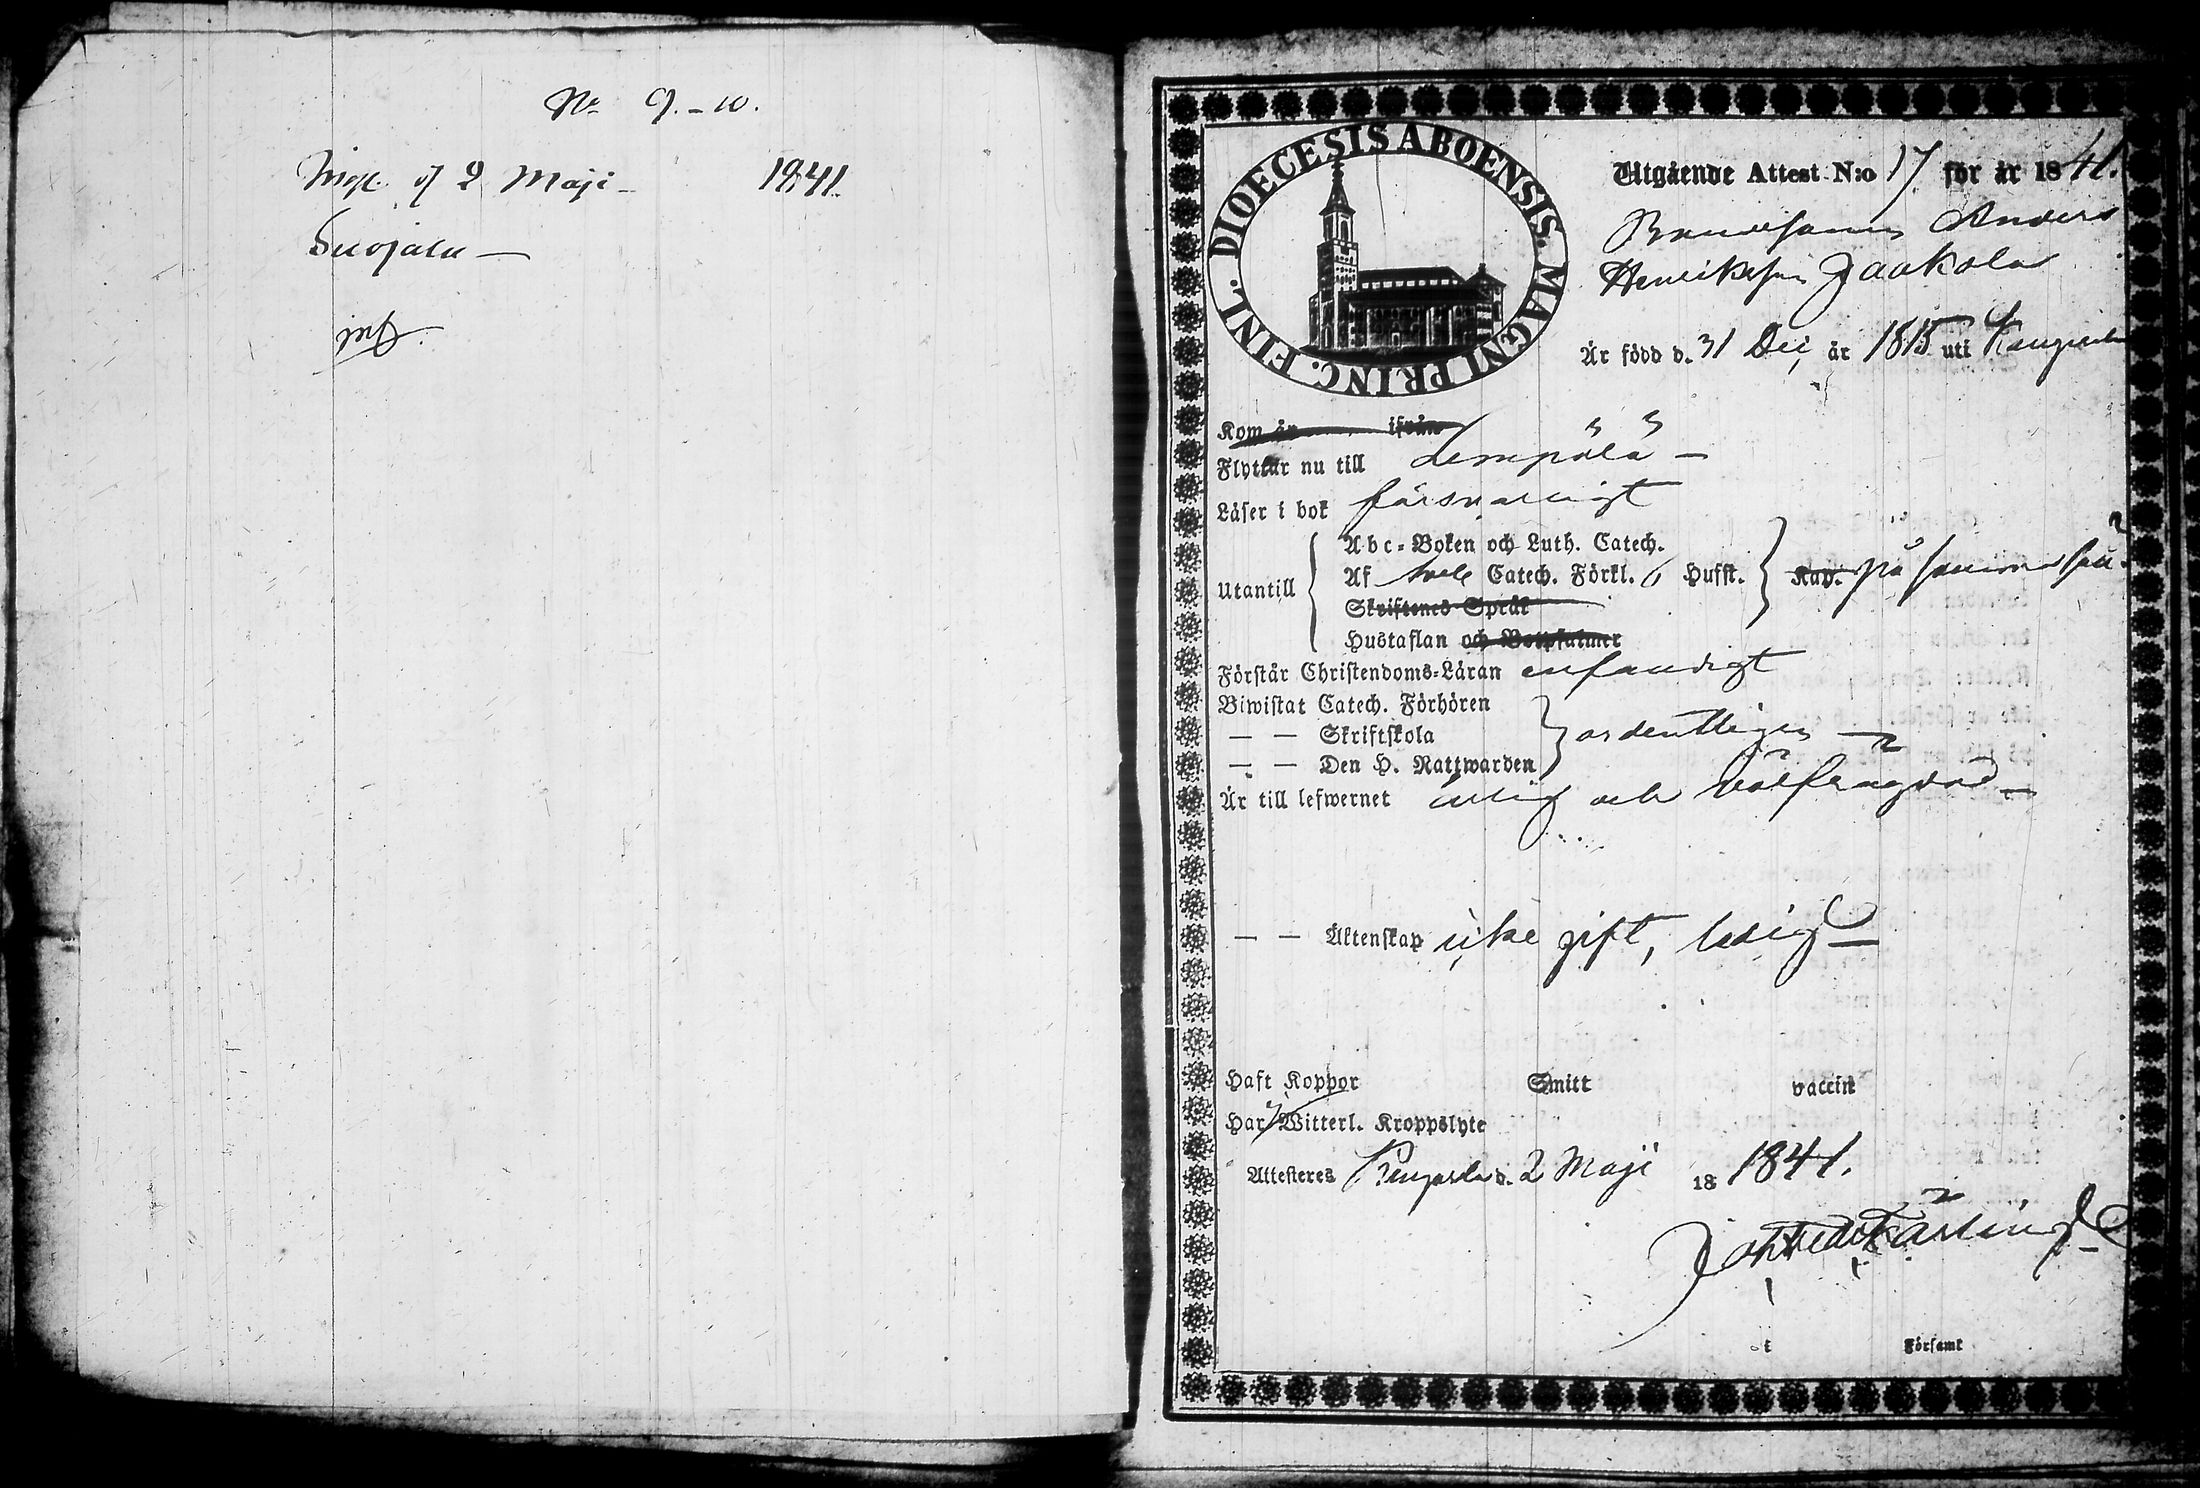 No 9.-10.
d 2 Maji 1841.
Suojala
DIOECESIS ABOENSIS. MAGNI PRINC. FINL.
Utgående Attest N:o 17 för år 1841.
Anders
Henriksson Jaakola
År född d. 31 Dec, år 1815 uti
Kom år ifrån
Flyttar nu till Lempälä
Läser i bok försvarligt
Utantill
Abc-Boken och Luth. Catech.
Af Sveb Catech. Förkl. 6 Hufst. Kap. på samma sätt
Skriftenes Språk
Hustaflan och Botpsalmer
Förstår Christendoms-Läran enfaldigt
Biwistat Catech. Förhören
— — Skriftskola ordentligen
— — Den H. Nattwarden
Är till lefwernet ärlig och välfrägdad
— — Äktenskap icke gift, ledig
Haft Koppor Smitt vaccin
Har Witterl. Kroppslyte
Attesteres d. 2 Maji 18 1841.
Församl